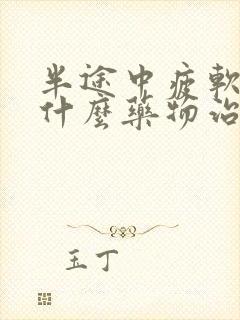 半途中疲軟
什麼藥物治
玉丁